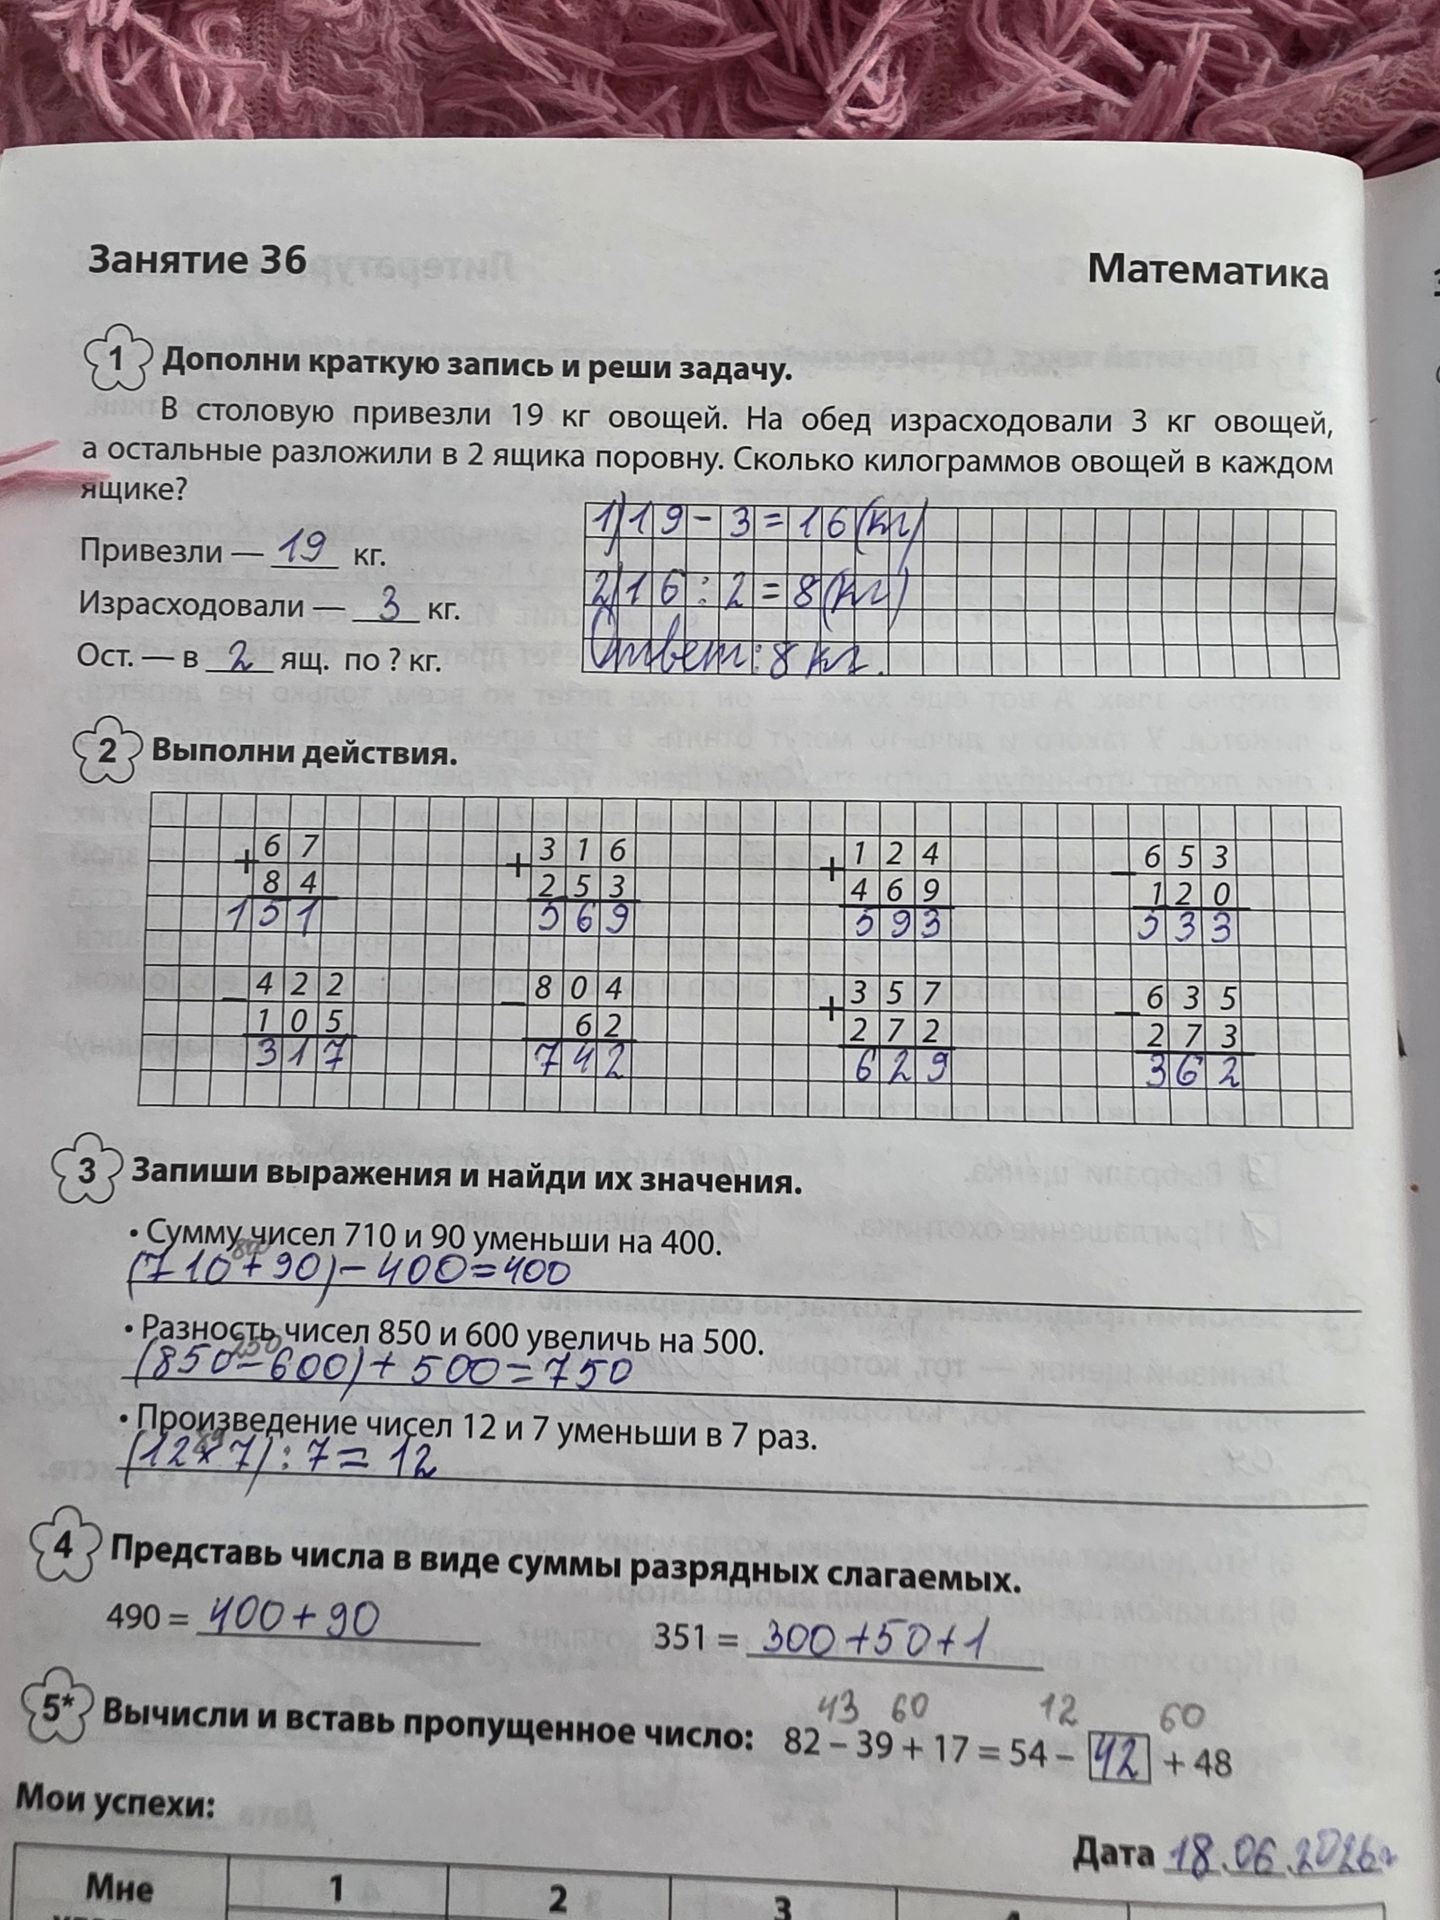 Занятие 36
Математика
1 Дополни краткую запись и реши задачу.
В столовую привезли 19 кг овощей. На обед израсходовали 3 кг овощей,
а остальные разложили в 2 ящика поровну. Сколько килограммов овощей в каждом
ящике?
Привезли — 19 кг.
Израсходовали — 3 кг.
Ост. — в 2 ящ. по ? кг.
1) 19 - 3 = 16 (кг)
2) 16 : 2 = 8 (кг)
Ответ: 8 кг.
2 Выполни действия.
+ 67 + 316 + 124 − 653
84 253 469 120
151 569 593 533
− 422 − 804 + 357 − 635
105 62 272 273
317 742 629 362
3 Запиши выражения и найди их значения.
• Сумму чисел 710 и 90 уменьши на 400.
800
(710 + 90) − 400 = 400
• Разность чисел 850 и 600 увеличь на 500.
250
(850 − 600) + 500 = 750
• Произведение чисел 12 и 7 уменьши в 7 раз.
(12 × 7) : 7 = 12
4 Представь числа в виде суммы разрядных слагаемых.
490 = 400 + 90
351 = 300 + 50 + 1
43 60 12 60
5* Вычисли и вставь пропущенное число: 82 − 39 + 17 = 54 − 42 + 48
Мои успехи:
Дата 18.06.2026г
Мне 1 2 3